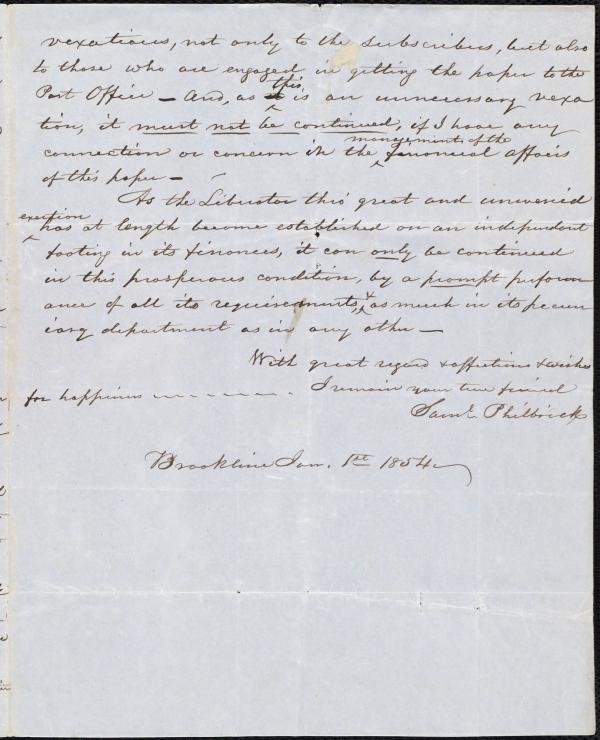 vexatious, not only to the subscribers, but also
to those who are engaged in getting the paper to the
Post Office — And, as this is an unnecessary vexa
tion, it must not be continued, if I have any
connection or concern in the management of the financial affairs
of this paper —
As the Liberator this great and unwearied
exertion has at length become established on an independent
footing in its finances, it can only be continued
in this prosperous condition, by a prompt perform
ance of all its requirements, & as much in its pecun
iary department as in any other —
With great regard & affections & wishes
for happiness - - - - - - - - . I remain your true friend
Saml. Philbrick
Brookline Jan. 1st 1854